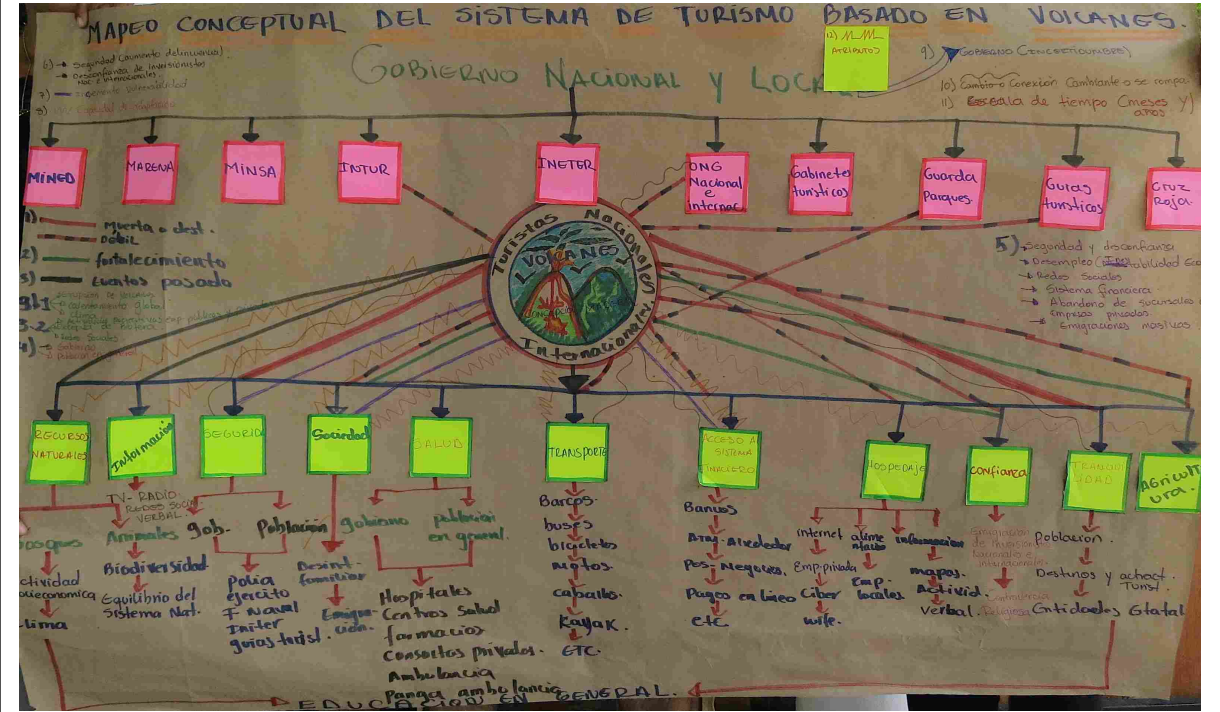 MAPEO CONCEPTUAL DEL SISTEMA DE TURISMO BASADO EN VOLCANES.
GOBIERNO NACIONAL Y LOCAL
12)
ATRIBUTOS
6) → Seguridad (aumento delincuencia)
→ Desconfianza de inversionistas
Nac e internacionales
7)
9) GOBIERNO (INCERTIDUMBRE)
10) Cambio o Conexión Cambiante o se rompa
11) Escala de tiempo (meses y)
años
MINED
MARENA
MINSA
INTUR
INETER
ONG
Nacional
e
internac.
Gabinetes
turísticos
Guarda
Parques.
Guías
turísticos
CRUZ
ROJA.
1) Muerta o dest.
Débil
2) fortalecimiento
3) Eventos pasado
Redes Sociales
4) → Gobierno
5) Seguridad y desconfianza
→ Desempleo
→ Redes Sociales
→ Sistema financiera
→ Abandono de sucursales
Empresas privadas
→ Emigraciones masivas
Turistas Nacionales y
Internacionales
VOLCANES
CONCEPCIÓN
RECURSOS
NATURALES
Información
SEGURID
Sociedad
SALUD
TRANSPORTE
ACCESO A
SISTEMA
FINANCIERO
HOSPEDAJE
Confianza
TRANQUI
LIDAD
AGRICULT
URA.
TV- RADIO
REDES SOCIA
VERBAL.
osques
ctividad
lima
Animales
Biodiversidad
Equilibrio del
Sistema Nat.
gob-
Población
polia
ejército
F Naval
Initer
guias turist.
Desint.
familiar
Emigra-
ción.
gobierno
población
en general.
Hospitales
Centros Salud
farmacias
Consultas privadas.
Ambulancia
Panga ambulancia
Barcos.
buses
bicicletas
motos
caballos.
Kayak.
ETC.
Bancos
Pos- Negocios.
Pagos en línea
etc
internet
Emp-privada
Ciber
wife.
alime
ntario
Emp.
locales
informacion
mapas.
Activid.
Verbal.
Población.
Destinos y
Turist.
Entidades Estatal
EDUCACION EN GENERAL.